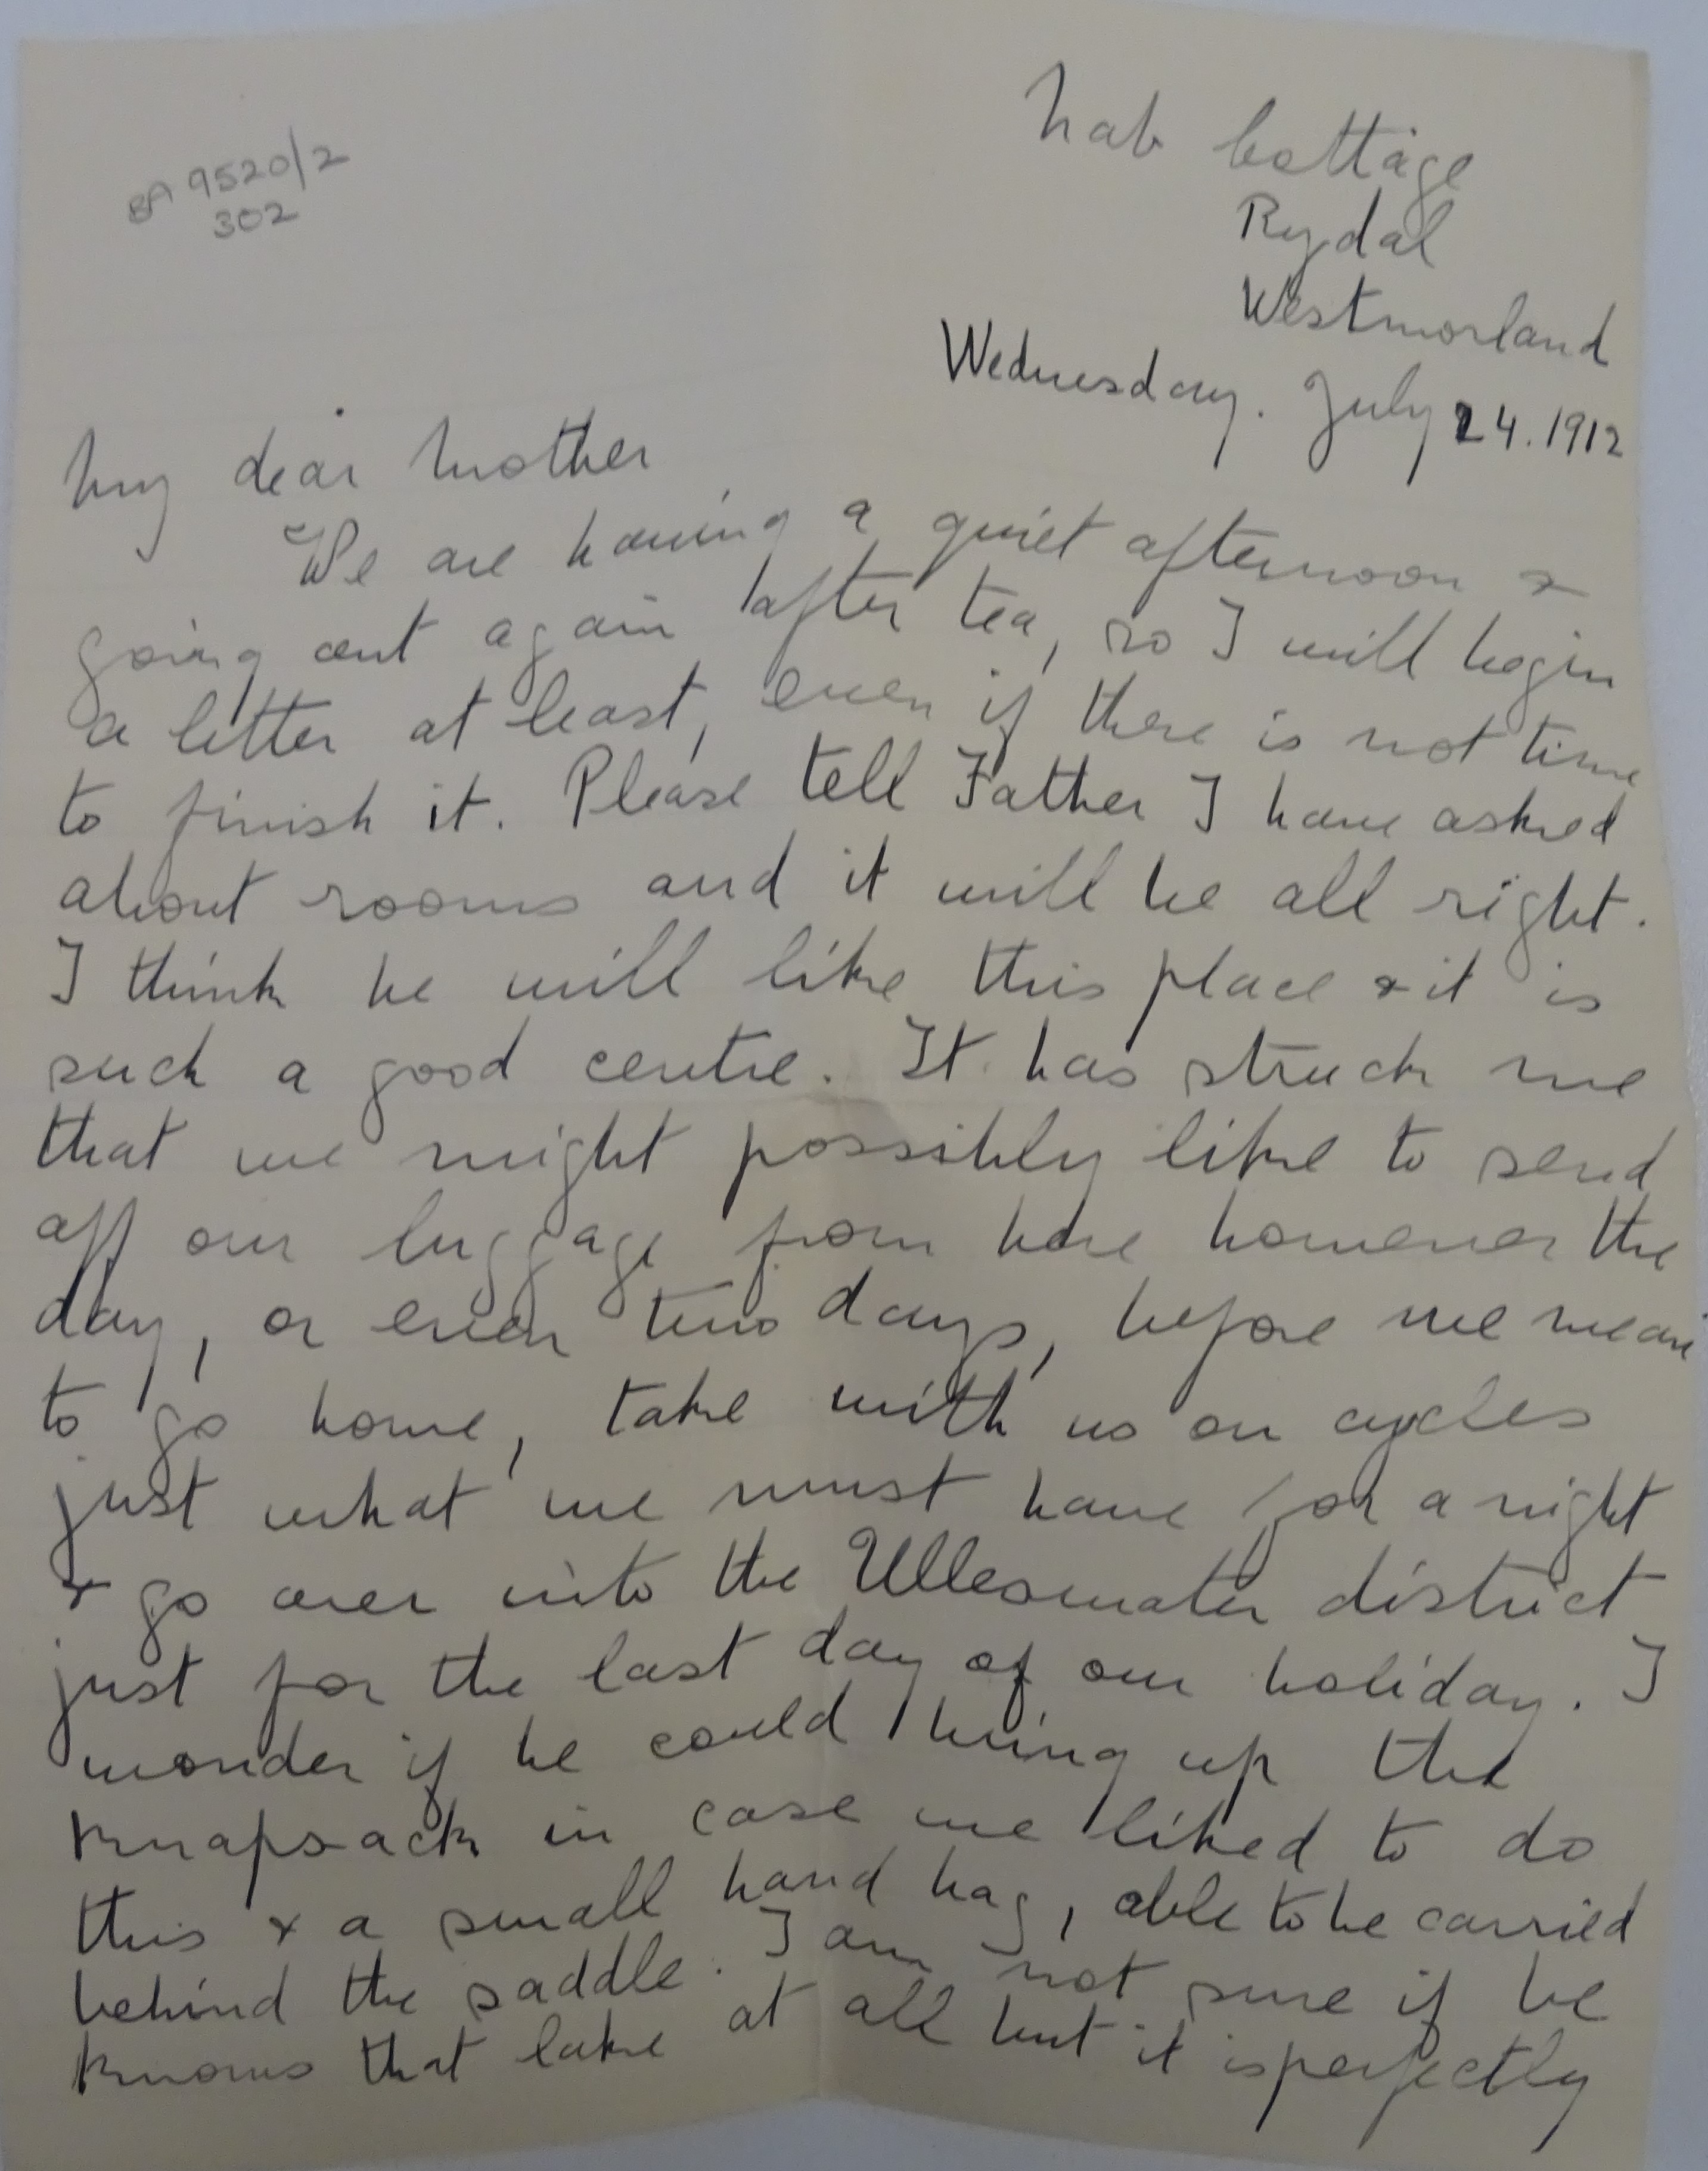 BA 9520/2
302
Nab Cottage
Rydal
Westmorland
Wednesday. July 24. 1912
My dear Mother
We are having a quiet afternoon &
going out again after tea, so I will begin
a letter at least, even if there is not time
to finish it. Please tell Father I have asked
about rooms and it will be all right.
I think he will like this place & it is
such a good centre. It has struck me
that we might possibly like to send
off our luggage from here however the
day, or even two days, before we mean
to go home, take with us on cycles
just what we must have for a night
& go over into the Ulleswater district
just for the last day of our holiday. I
wonder if he could bring up the
knapsack in case we liked to do
this & a small hand bag, able to be carried
behind the saddle. I am not sure if he
knows that lake at all but it is perfectly